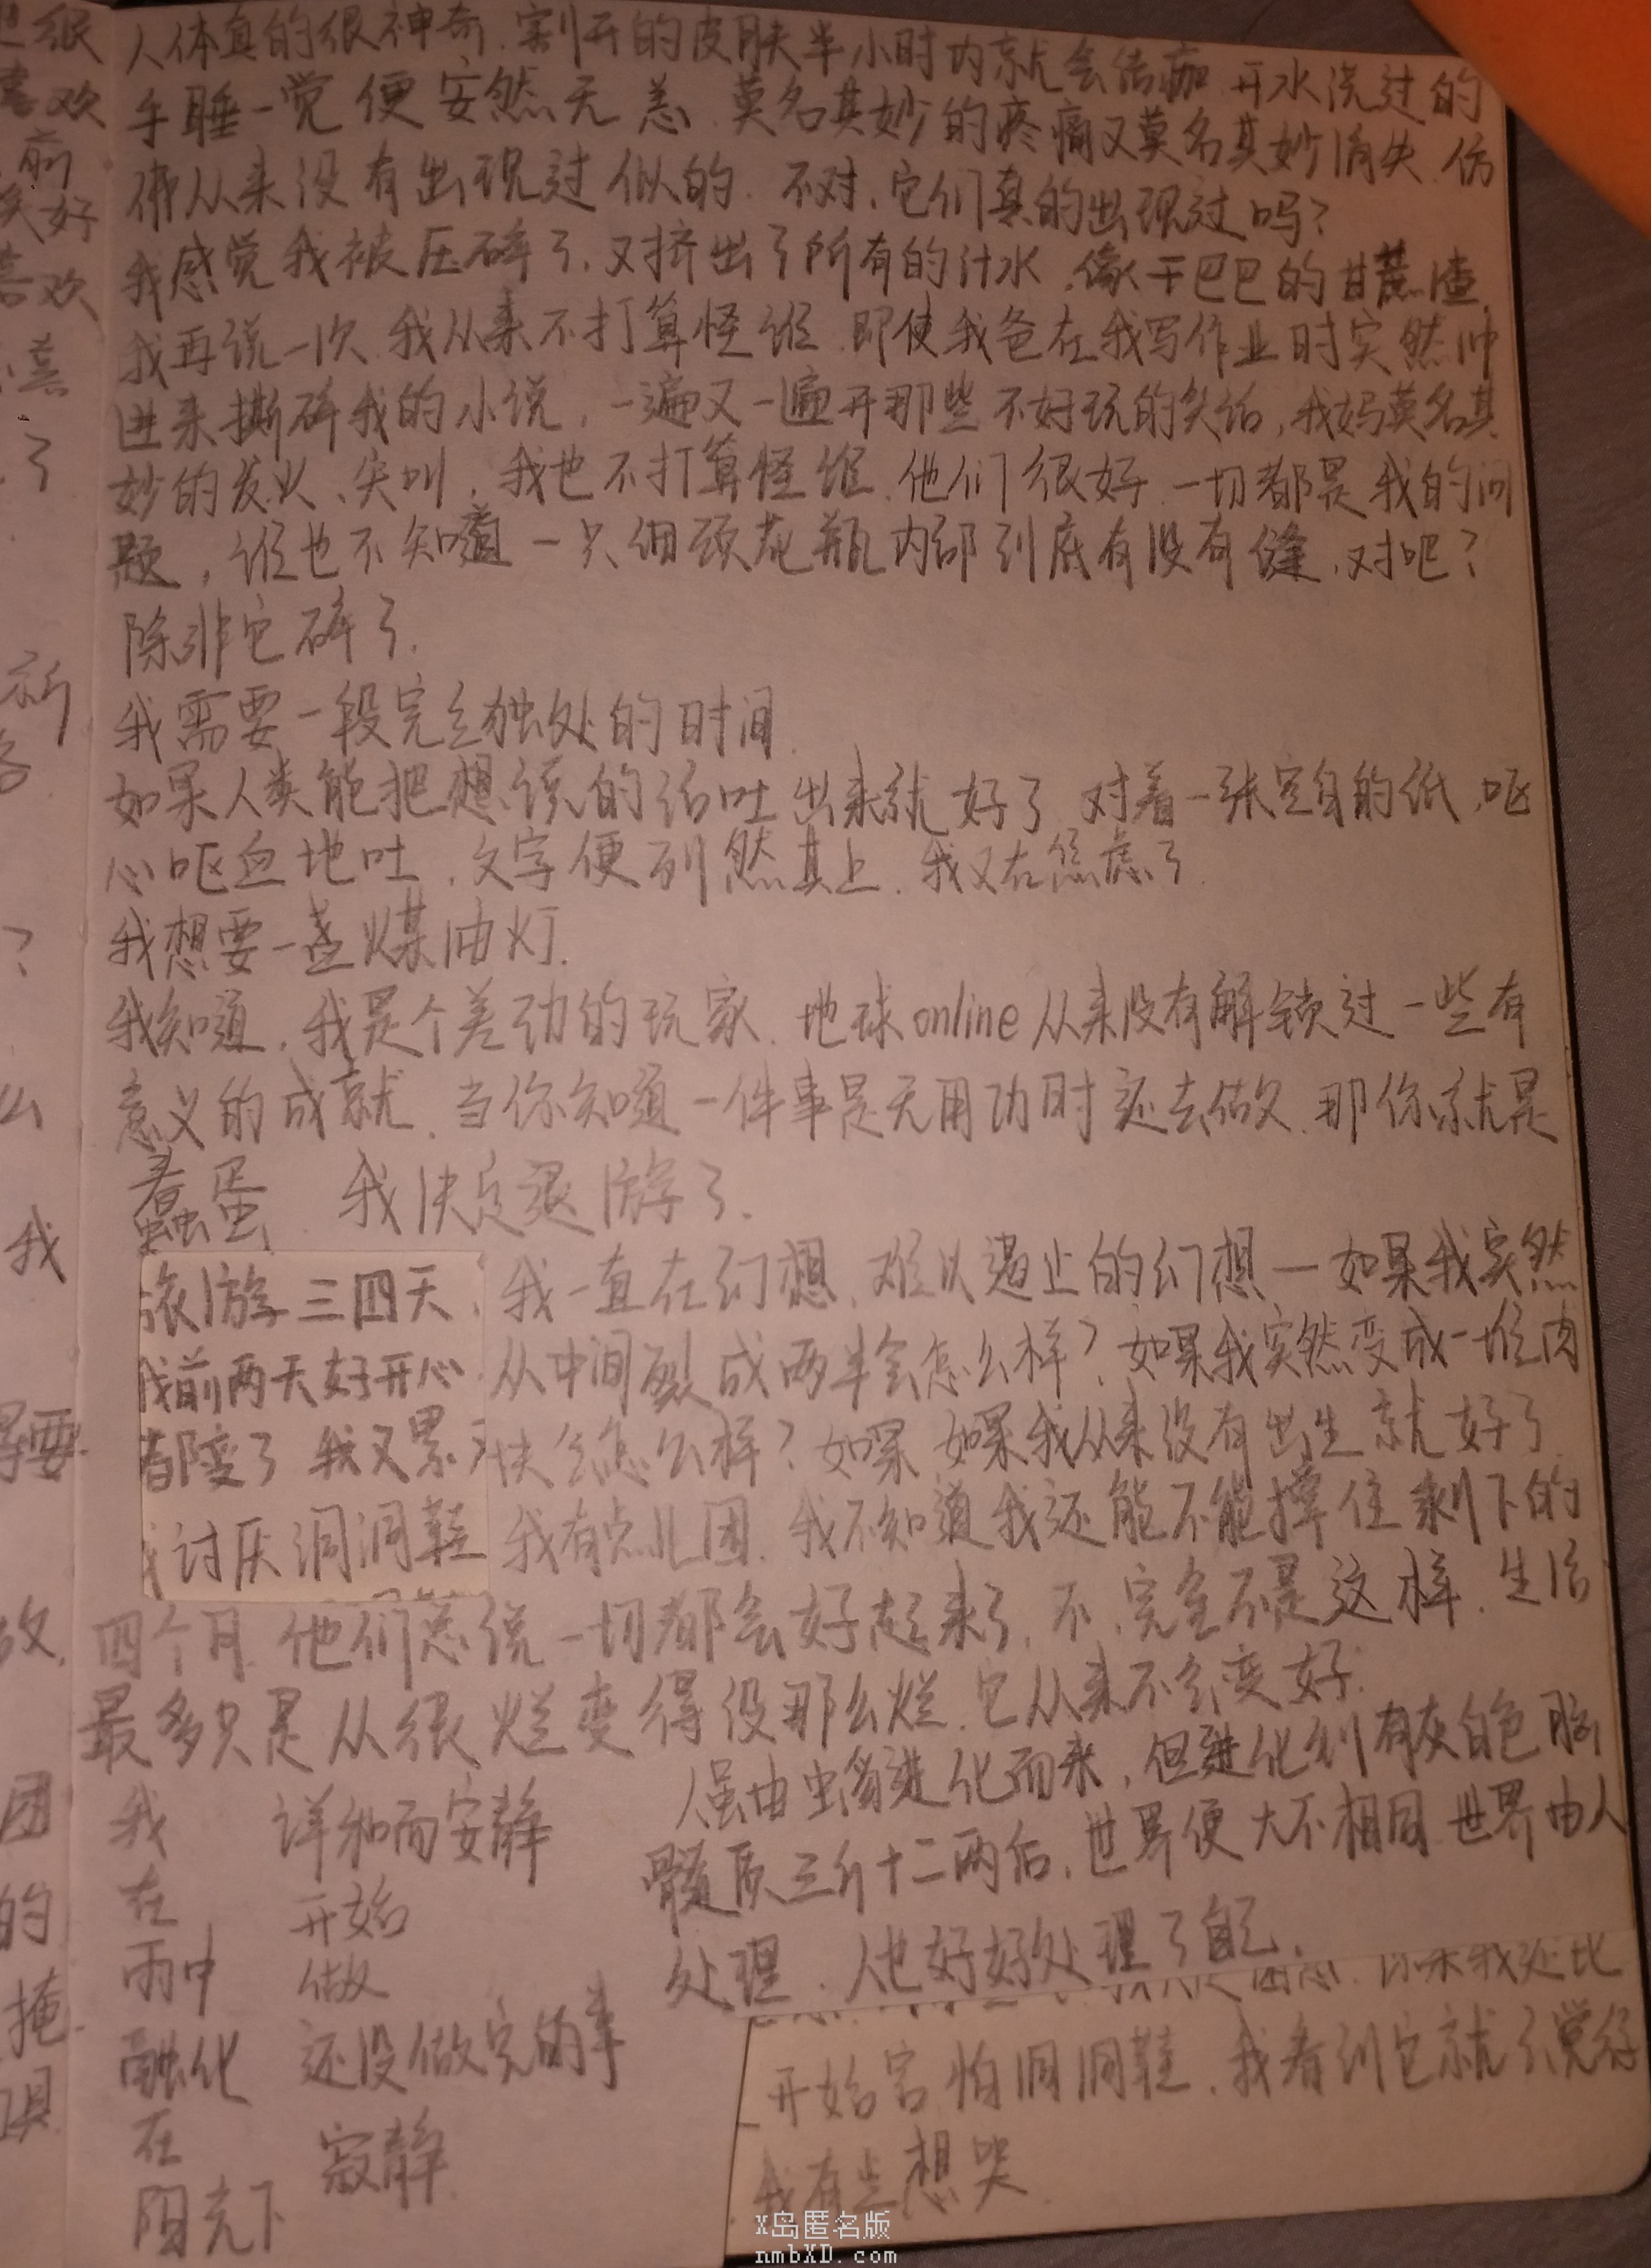 人体真的很神奇.割开的皮肤半小时内就会结痂.开水浇过的
手睡一觉便安然无恙.莫名其妙的疼痛又莫名其妙消失.仿
佛从来没有出现过似的.不对,它们真的出现过吗?
我感觉我被压碎了,又挤出了所有的汁水.像干巴巴的甘蔗渣.
我再说一次.我从来不打算怪谁.即使我爸在我写作业时突然冲
进来撕碎我的小说,一遍又一遍开那些不好玩的笑话,我妈莫名其
妙的发火、尖叫,我也不打算怪谁.他们很好.一切都是我的问
题,谁也不知道一只细颈花瓶内部到底有没有缝,对吧?
除非它碎了.
我需要一段完全独处的时间.
如果人类能把想说的话吐出来就好了.对着一张空白的纸,呕
心呕血地吐,文字便列然其上.我又在焦虑了.
我想要一盏煤油灯.
我知道,我是个差劲的玩家.地球online从来没有解锁过一些有
意义的成就.当你知道一件事是无用功时还去做,那你就是
蠢蛋.我决定退游了.
旅游三四天,我一直在幻想,难以遏止的幻想—如果我突然
我前两天好开心.从中间裂成两半会怎么样?如果我突然变成一堆肉
都陵了 我又累 块会怎么样?如果 如果我从来没有出生就好了.
讨厌洞洞鞋 我有点儿困.我不知道我还能不能撑住剩下的
四个月.他们总说一切都会好起来了,不,完全不是这样.生活
最多只是从很烂变得没那么烂.它从来不会变好.
我
在
雨中
融化
在
阳光下
详和而安静
开始
做
还没做完的事
寂静.
人虽由虫豸进化而来,但进化到有灰白色脑
髓质三斤十二两后,世界便大不相同.世界由人
处理,人也好好处理了自己.
开始害怕洞洞鞋,我看到它就觉得
我有些想哭.
x岛匿名版
nmbXD.com